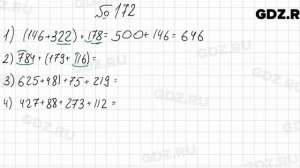 № 172
GDZ.RU
1) (146+322)+178=500+146=646
2) 784+(179+116)=
3) 625+481+75+219=
4) 427+88+273+112=
GDZ.RU